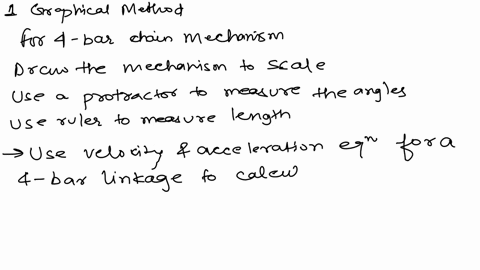 1 Graphical Method
for 4-bar chain mechanism
Draw the mechanism to scale
Use a protractor to measure the angles
Use ruler to measure length
→ Use velocity & acceleration eqⁿ for a
4-bar linkage to calcu